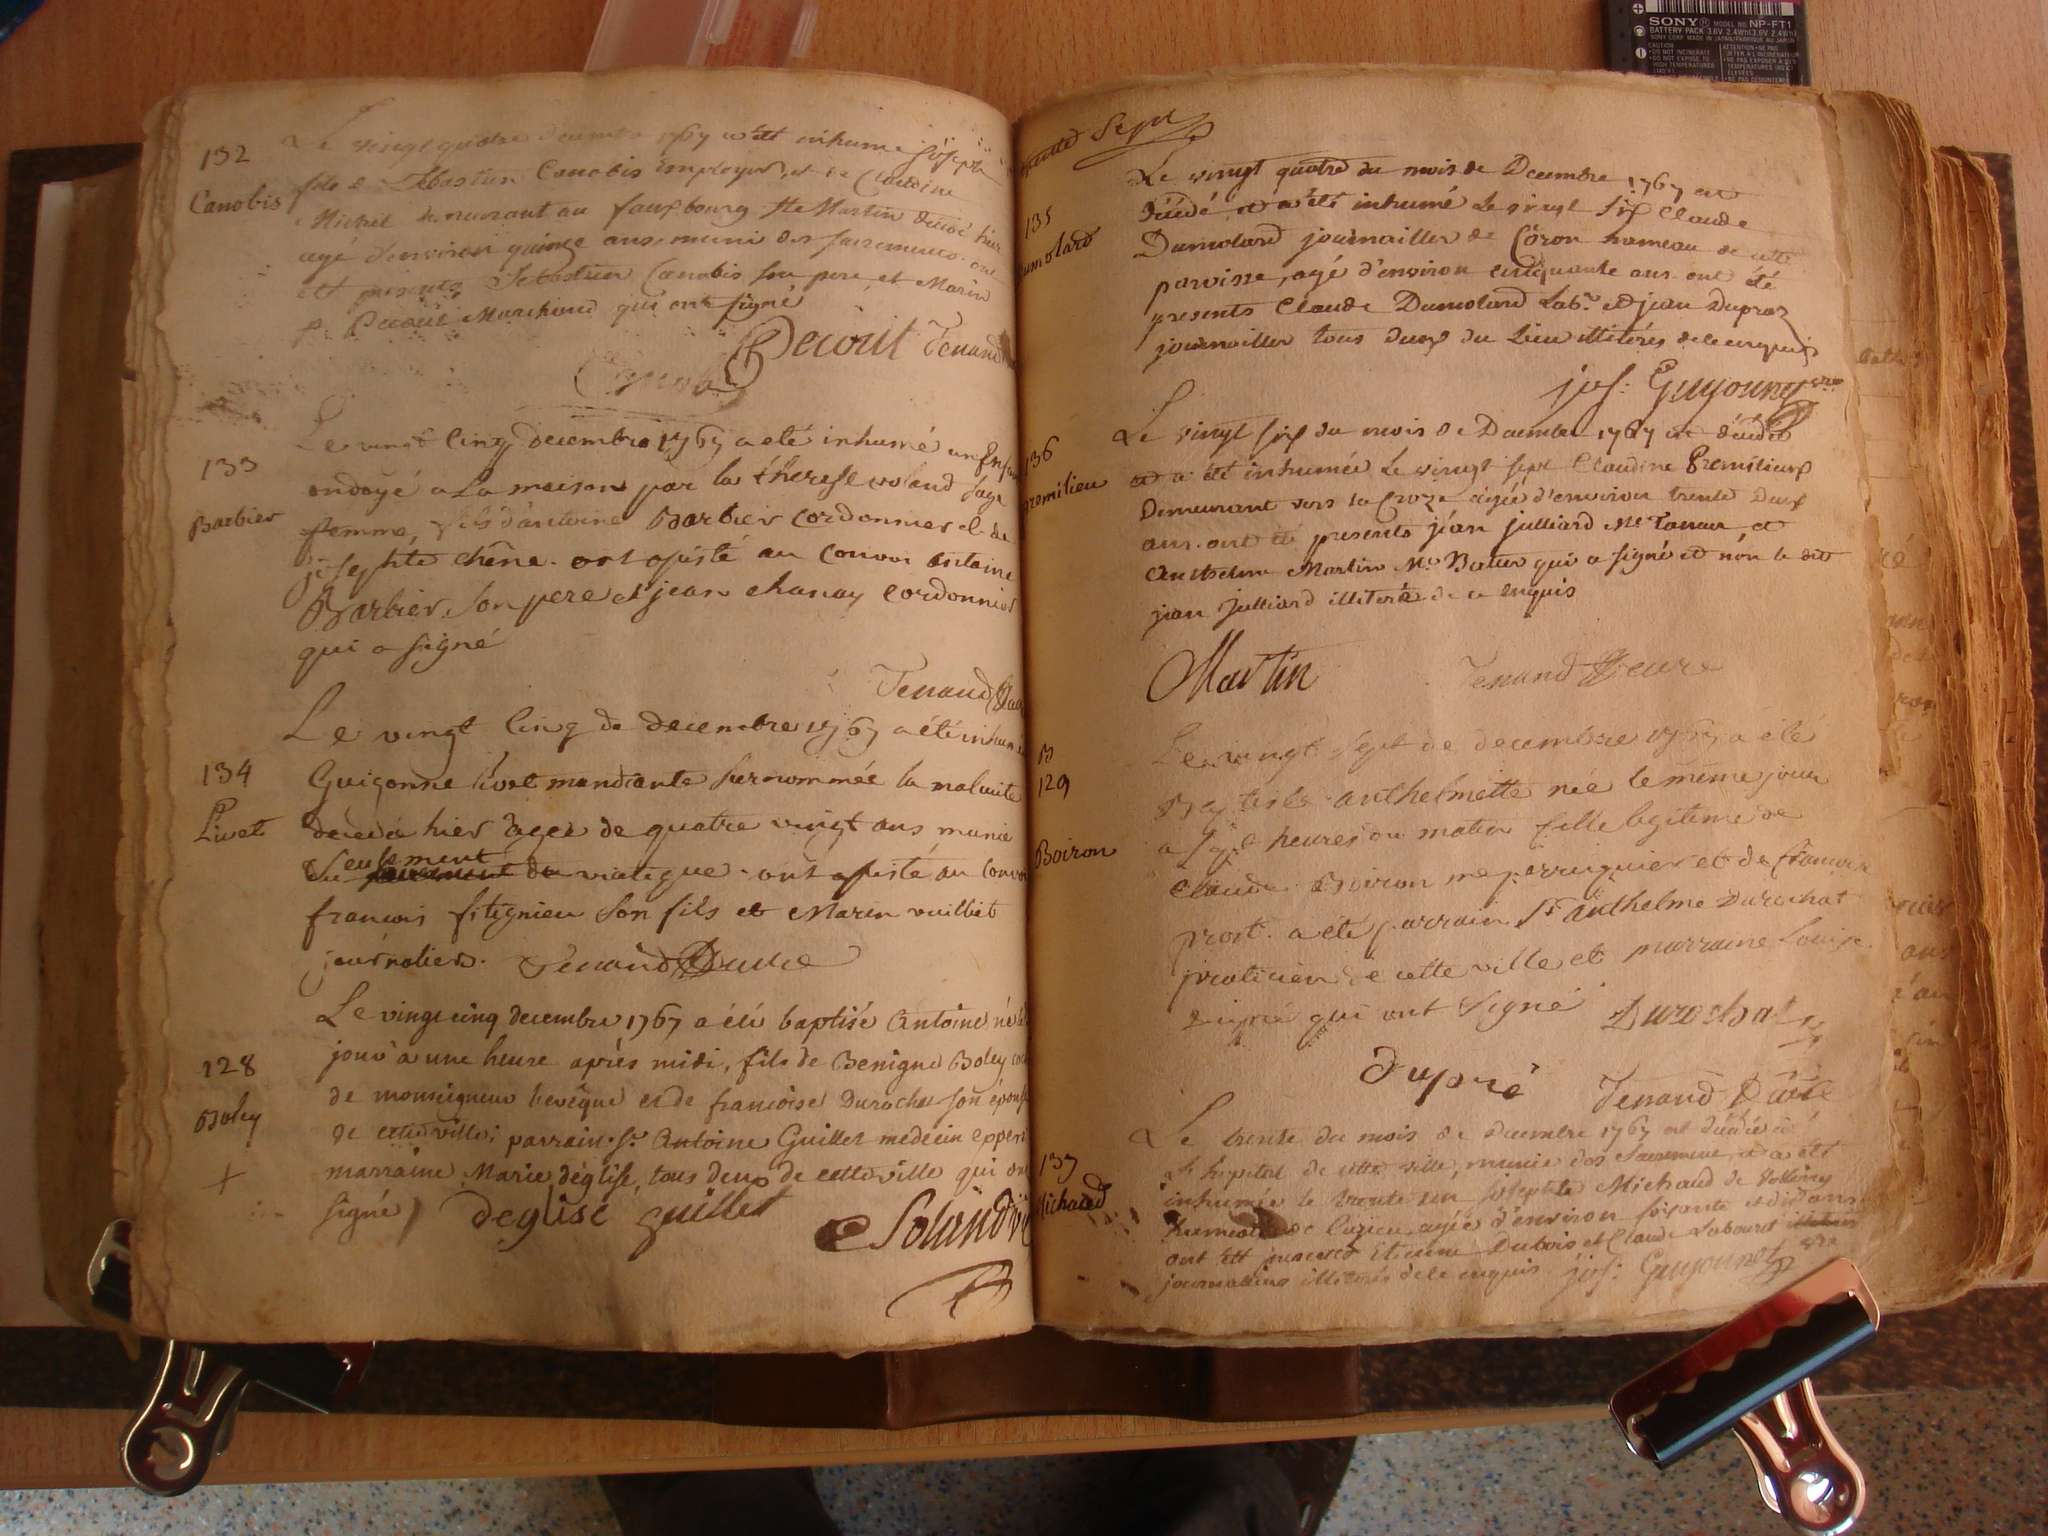 SONY MODEL NO. NP-FT1
BATTERY PACK 3.6V 2.4Wh(3.6V 2.4Wh)
132
Canobis
Le vingt quatre decembre 1767 a été inhumé joseph
fils de Sebastien Canobis Employé, et de Claudine
Michel demeurant au fauxbourg St Martin decedé hier
agé d'environ quinze ans muni des sacremens. ont
été presents Sebastien Canobis son pere, et Marin
Marchand qui ont signé
Decoüt Tenand
133
Barbier
Le vingt cinq decembre 1767 a eté inhumé un Enfant
ondoyé a La maison par la therese voland sage
femme, fils d'antoine Barbier cordonnier et de
josephte chêne. ont assisté au Convoi antoine
Barbier son pere et jean chanay cordonnier
qui a signé
Tenand
134
Livet
Le vingt cinq de decembre 1767 a été inhumé
Guigonne livet mandiante surnommée la maluite
decedée hier agée de quatre vingt ans munie
seulement du viatique. ont assisté au Convoi
francois fitignieu son fils et Marin vuilliet
journaliers. Tenand Vicaire
128
Boley
+
Le vingt cinq decembre 1767 a été baptisé Antoine né le
jour a une heure après midi, fils de Benigne Boley
de monseigneur l'evêque et de francoise Durochat son épouse
de cette ville; parrain Sr. Antoine Guillet medecin
marraine Marie déglise, tous deux de cette ville qui ont
signé deglise guillet
Sept
135
Dumolard
Le vingt quatre du mois de Decembre 1767 est
décédé, et a été inhumé le vingt six Claude
Dumolard journailler de Coron hameau de cette
paroisse, agé d'environ cinquante ans. ont été
presents Claude Dumolard Labr. et jean Dupraz
journailler tous deux du Lieu illiterés de ce enquis
jos: Guyonnet
136
premilieu
Le vingt six du mois de Decembre 1767 est décédée
et a été inhumée le vingt sept Claudine Premilieux
Demeurant vers la Croze agée d'environ trente deux
ans. ont été presents jean julliard Me Tanneur et
Anthelme Martin Me Batier qui a signé et nón le dit
jean julliard illiteré de ce enquis
Martin Tenand Vicaire
B
129
Boiron
Le vingt sept de decembre 1767 a été
Baptisée anthelmette née le même jour
a sept heures du matin fille legitime de
claude Boiron me perruquier et de francoise
prost. a été parrain Sr anthelme Durochat
praticien de cette ville et marraine Louise
dupré qui ont signé Durochat
dupré Tenand Vicaire
137
Michaud
Le trente du mois de decembre 1767 est décédée à
l'hopital de cette ville, munie des Sacremens, et a été
inhumée le trente un josephte Michaud de
hameau de agée d'environ soixante et dix ans
ont été presents Etienne Dubois et Claude Labouret
journaliers illiterés de ce enquis. jos: Guyonnet